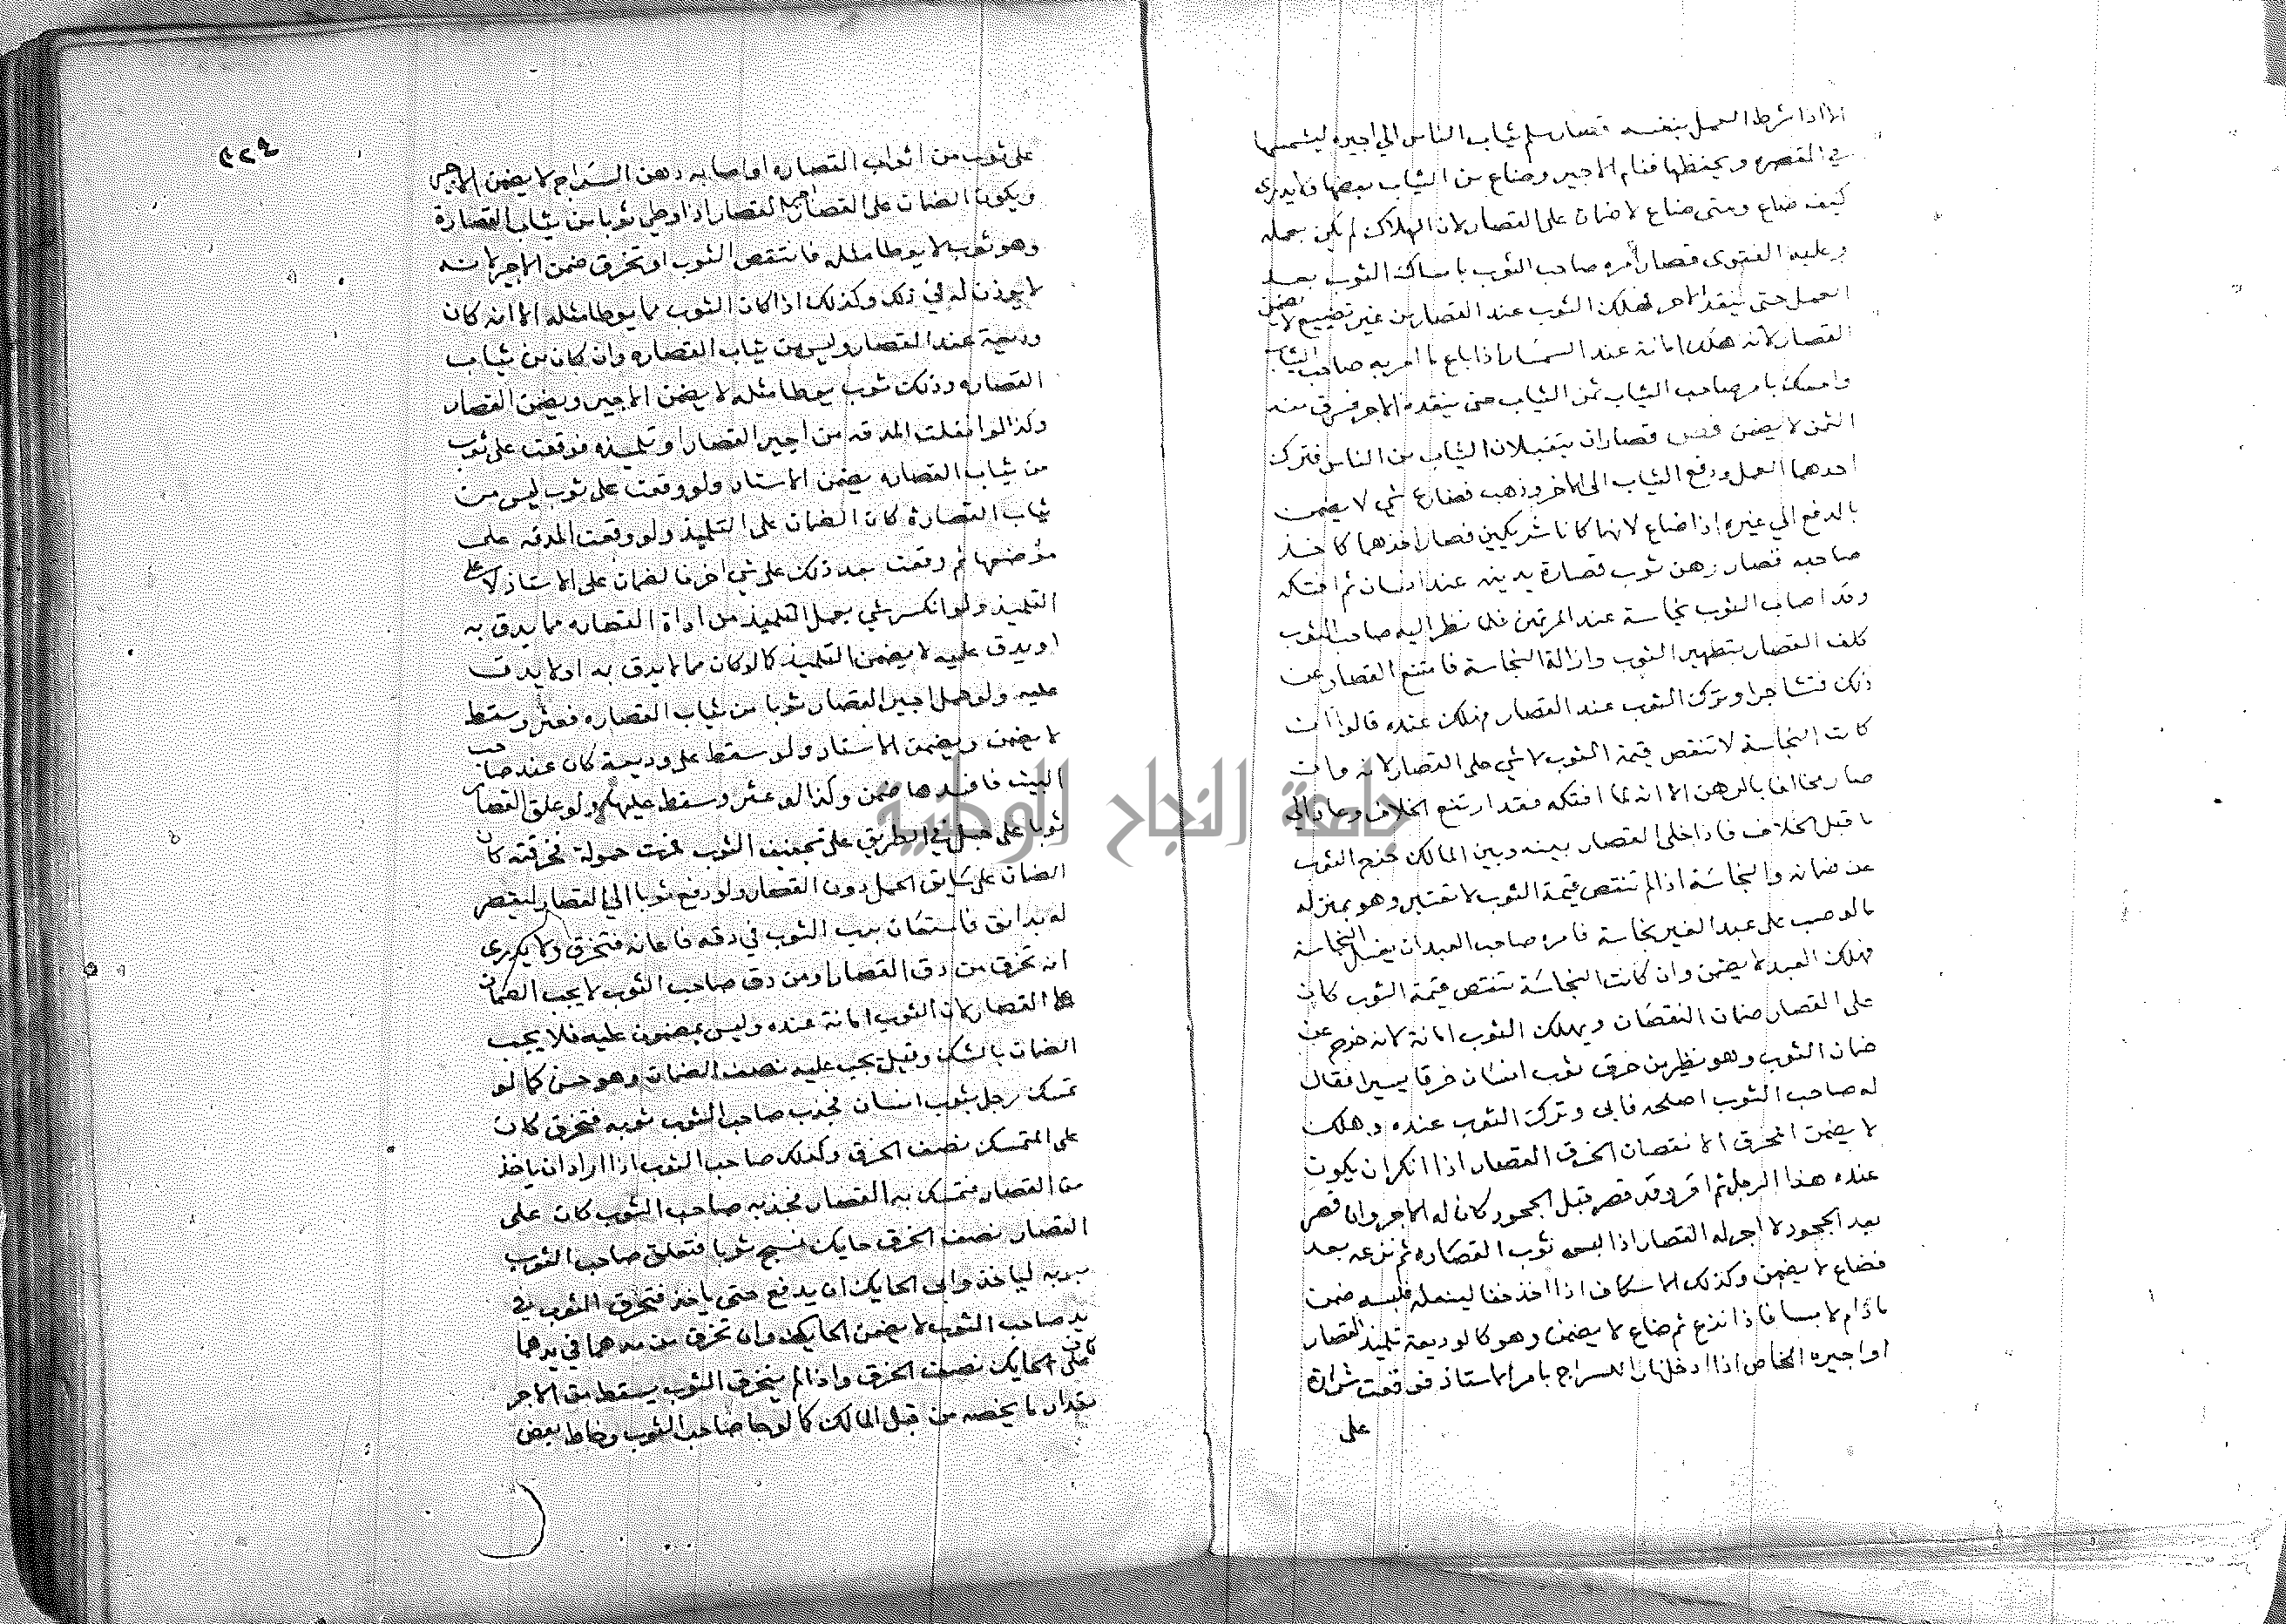 الا اذا شرط العمل بنفسه قصار سلم ثياب الناس الي اجيره ليشمسها
في المقصره ويحفظها فنام الاجير وضاع من الثياب بعضها ولا يدرى
كيف ضاع ومتى ضاع لا ضمان على القصار لان الهلاك لم يكن بعمله
وعليه الفتوى قصار أمره صاحب الثوب بامساك الثوب بعد
العمل حتى ينقد الاجر فهلك الثوب عند القصار من غير تضييع لا يضمن
القصار لانه هلك امانة عند السمسار اذا باع ما امر به صاحب الثياب
وامسك بامر صاحب الثياب ثمن الثياب حتى ينقده الاجر فسرق منه
الثمن لا يضمن قصاران يتقبلان الثياب من الناس فترك
احدهما العمل ودفع الثياب الى الاخر وذهب فضاع شي لا يضمن
بالدفع الي غيره اذا ضاع لانهما كانا شريكين فصار اخذهما كاخذ
صاحبه قصار رهن ثوب قصارة بدينه عند انسان ثم افتكه
وقد اصاب الثوب نجاسة عند المرتهن فلما نظر اليه صاحب الثوب
كلف القصار بتطهير الثوب وازالة النجاسة فامتنع القصار عن
ذلك فتشاجرا وترك الثوب عند القصار فهلك عنده قالوا ان
كانت النجاسة لا تنقص قيمة الثوب لا شي على القصار لانه وان
صار مخالفا بالرهن الا انه لما افتكه فقد ارتفع الخلاف وعاد الي
ما قبل الخلاف فاذا خلى القصار بينه وبين المالك خرج الثوب
عن ضمانه والنجاسة اذا لم تنتقص قيمة الثوب لا تعتبر وهو بمنزلة
ما لو صب على عبد الغير نجاسة فامره صاحب العبد ان يغسل النجاسة
فهلك العبد لا يضمن وان كانت النجاسة تنتقص قيمة الثوب كان
على القصار ضمان النقصان ويهلك الثوب امانة لانه خرج عن
ضمان الثوب وهو نظير من خرق ثوب انسان خرقا يسيرا فقال
له صاحب الثوب اصلحه فابى وترك الثوب عنده وهلك
لا يضمن المخرق الا نقصان الخرق القصار اذا انكر ان يكون
عنده هذا الرجل ثم اقر وقد قصر قبل الجحود كان له الاجر وان قصر
بعد الجحود لا اجر له القصار اذا لبس ثوب القصاره ثم نزعه بعد
فضاع لا يضمن وكذلك الاسكاف اذا اخذ خفا لينعله فلبسه ضمن
ما دام لابسا فاذا نزع ثم ضاع لا يضمن وهو كالوديعة تلميذ القصار
او اجيره الخاص اذا ادخل نارا للسراج بامر الاستاذ فوقعت شرارة
على
٤٢٩
على ثوب من اثواب القصاره او اصابه دهن السراج لا يضمن الاجير
ويكون الضمان على القصار اجير القصار اذا وطي ثوبا من ثياب القصارة
وهو ثوب لا يوطا مثله فانتقص الثوب او تخرق ضمن الاجير لانه
لا يوذن له في ذلك وكذلك اذا كان الثوب مما يوطا مثله الا انه كان
وديعة عند القصار وليس من ثياب القصاره وان كان من ثياب
القصاره وذلك ثوب يوطا مثله لا يضمن الاجير ويضمن القصار
وكذا لو انفلت المدقه من اجير القصار او تلميذه فوقعت على ثوب
من ثياب القصاره يضمن الاستاد ولو وقعت على ثوب ليس من
ثياب القصارة كان الضمان على التلميذ ولو وقعت المدقه على
موضعها ثم وقعت بعد ذلك على شي اخر فالضمان على الاستاذ لا على
التلميذ ولو انكسر شي بعمل التلميذ من اداة القصاره مما يدق به
او يدق عليه لا يضمن التلميذ كالو كان مما لا يدق به او لا يدق
عليه ولو حمل اجير القصار ثوبا من ثياب القصاره فعثر وسقط
لا يضمن ويضمن الاستاد ولو سقط على وديعة كان عند صاحب
البيت فافسدها ضمن وكذا لو عثر وسقط عليها ولو علق القصار
ثوبا على حبل في الطريق على تجفيف الثوب فمرت حمولة فخرقته كان
الضمان على سايق الحمل دون القصار ولو دفع ثوبا الي القصار ليقصر
له بدانق فاستعان برب الثوب في دقه فاعانه فتخرق ولا يدرى
انه تخرق من دق القصار او من دق صاحب الثوب لا يجب الضمان
على القصار لان الثوب امانة عنده وليس بمضمون عليه فلا يجب
الضمان بالشك وقيل يجب عليه نصف الضمان وهو حسن كما لو
تمسك رجل بثوب انسان فجذب صاحب الثوب ثوبه فتخرق كان
على المتمسك نصف الخرق وكذلك صاحب الثوب اذا اراد ان ياخذ
من القصار فتمسك به القصار فجذبه صاحب الثوب كان على
القصار نصف الخرق حايك نسج ثوبا فتعلق صاحب الثوب
بثوبه لياخذ وابى الحايك ان يدفع حتى ياخذ فتخرق الثوب في
يد صاحب الثوب لا يضمن الحايك وان تخرق من مدهما في يدهما كان
على الحايك نصف الخرق واذا لم يتخرق الثوب يسقط من الاجر
بقدار ما يخصه من قبل المالك كما لو جا صاحب الثوب وخاط بعض
جامعة النجاح الوطنية